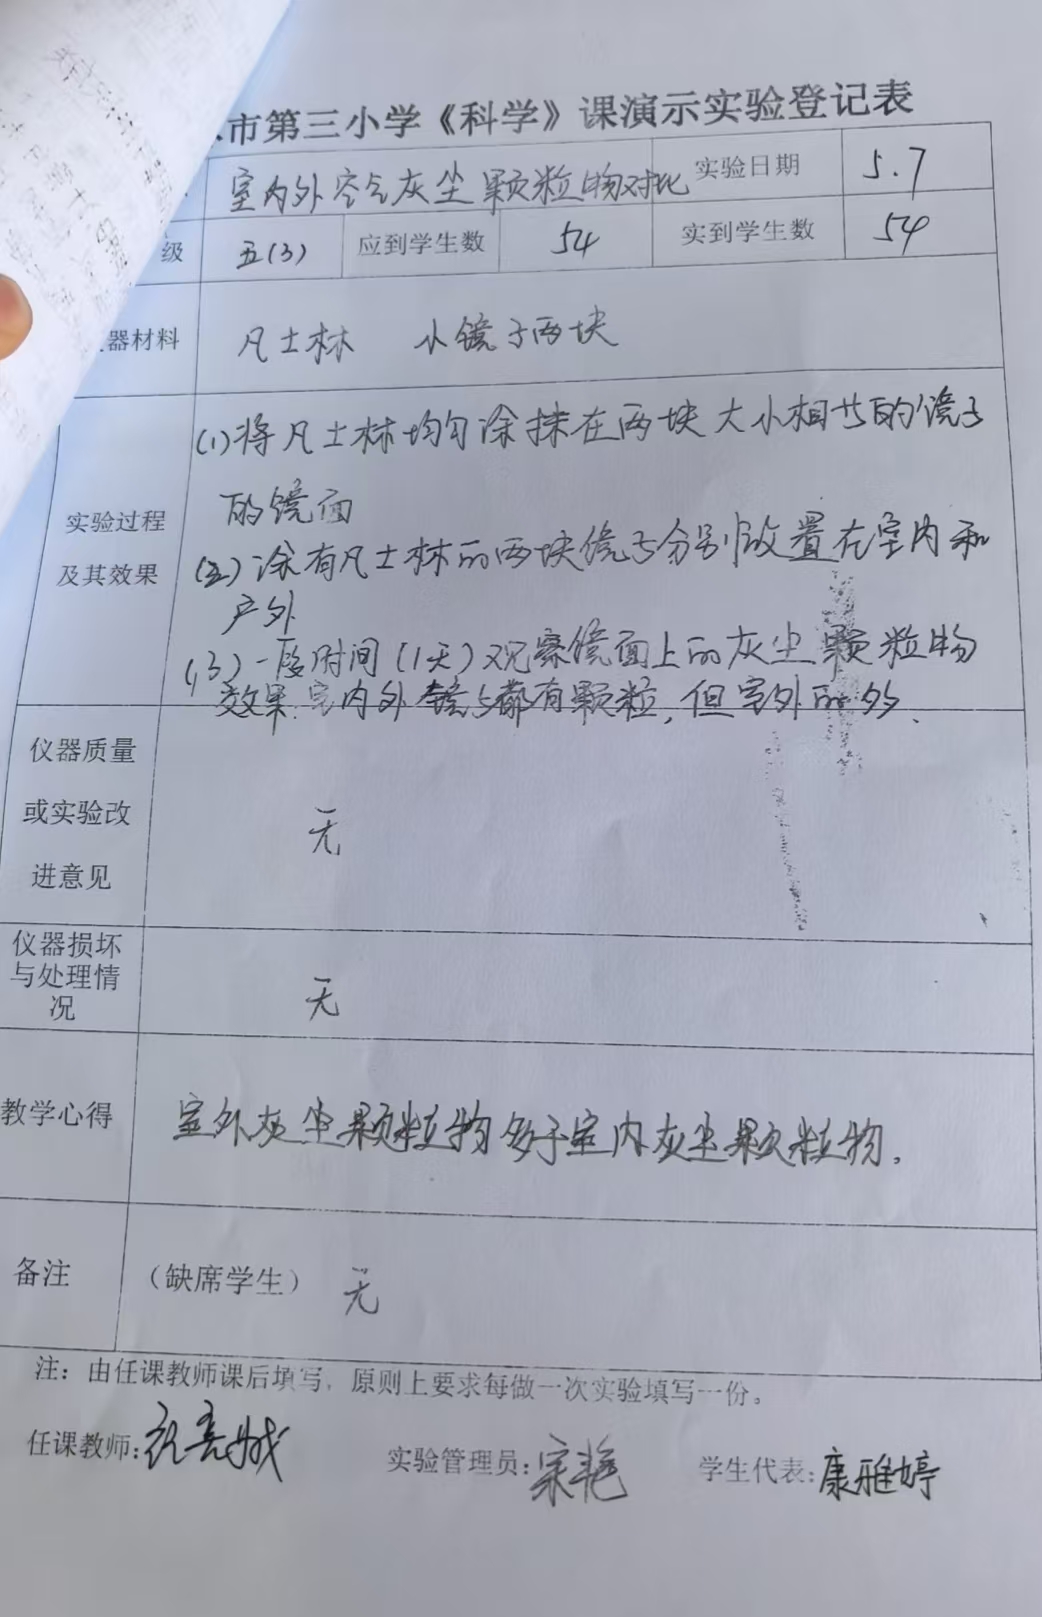 市第三小学《科学》课演示实验登记表
室内外空气灰尘颗粒物对比 实验日期 5.7
级 五(3) 应到学生数 54 实到学生数 54
器材料 凡士林 小镜子两块
(1)将凡士林均匀涂抹在两块大小相节的镜子
的镜面
实验过程
及其效果
(2)涂有凡士林的两块镜子分别放置在室内和
户外
(3)一段时间(1天)观察镜面上的灰尘颗粒物
效果:室内外镜子都有颗粒,但室外的多.
仪器质量
或实验改
进意见
无
仪器损坏
与处理情
况
无
教学心得 室外灰尘颗粒物多于室内灰尘颗粒物。
备注 (缺席学生) 无
注：由任课教师课后填写，原则上要求每做一次实验填写一份。
任课教师: 实验管理员:宋艳 学生代表:康雅婷